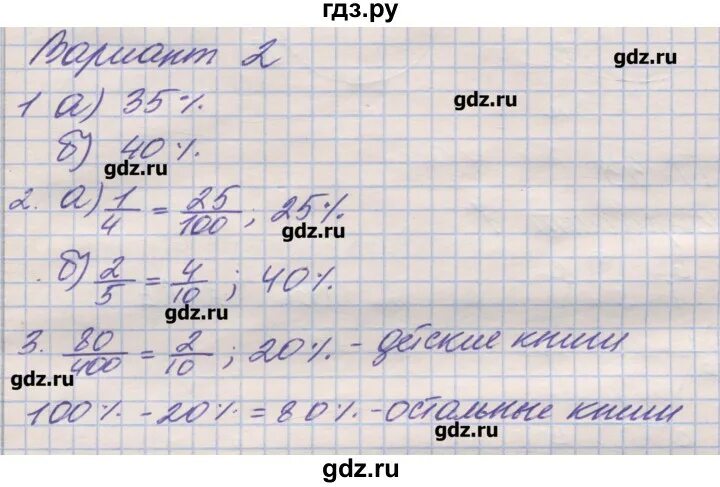 гдз.ру
Вариант 2
gdz.ru
1 а) 35%
gdz.ru
б) 40%
gdz.ru
2. а) 1/4 = 25/100; 25%
gdz.ru
б) 2/5 = 4/10; 40%
gdz.ru
3. 80/400 = 2/10; 20% - детские книги
gdz.ru
100% - 20% = 80% - остальные книги
gdz.ru
gdz.ru